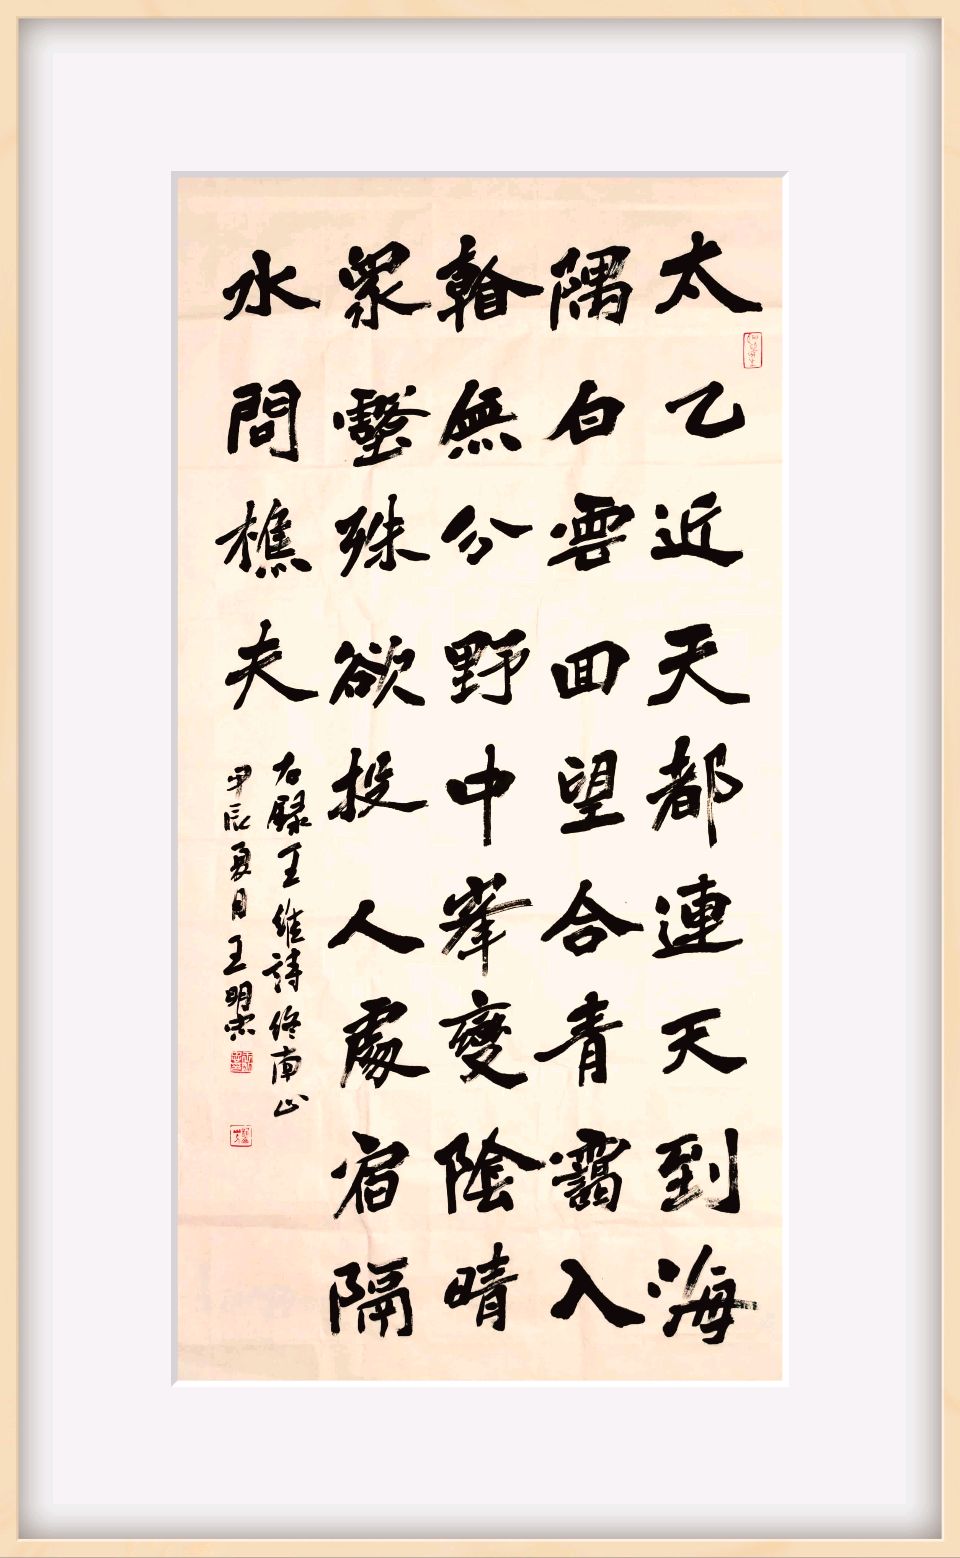 太乙近天都連天到海
隅白雲回望合青靄入
看無分野中峯變陰晴
眾壑殊欲投人處宿隔
水問樵夫
右録王維詩終南山
甲辰夏月王明